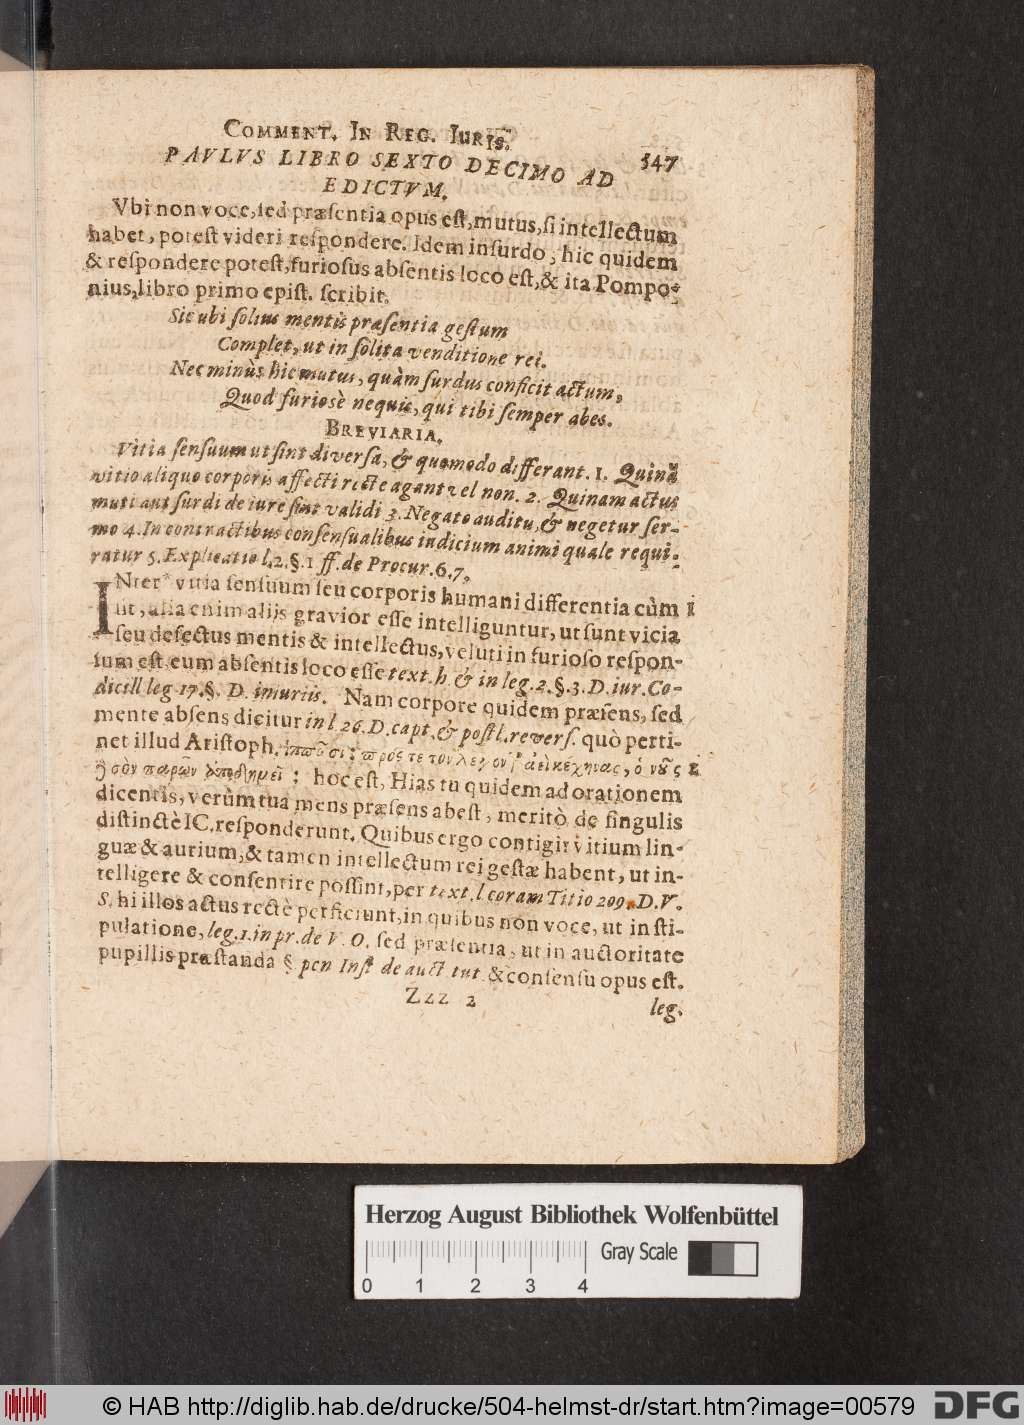 COMMENT. IN REG. IURIS. 547
PAVLVS LIBRO SEXTO DECIMO AD
EDICTVM.
Vbi non voce, sed præsentia opus est, mutus, si intellectum
habet, potest videri respondere. Idem insurdo, hic quidem
& respondere potest, furiosus absentis loco est, & ita Pompo-
nius, libro primo epist. scribit.
Sic ubi solius mentis præsentia gestum
Complet, ut in solita venditione rei.
Nec minùs hic mutus, quàm surdus conficit actum,
Quod furiosè nequis, qui tibi semper abes.
BREVIARIA.
Vitia sensuum ut sint diversa, & quomodo differant. 1. Quinã
vitio aliquo corporis affecti rectè agant vel non. 2. Quinam actus
muti aut surdi de iure sint validi 3. Negato auditu, & negetur ser-
mo 4. In contractibus consensualibus indicium animi quale requi-
ratur 5. Explicatio l. 2. §. 1 ff. de Procur. 6. 7.
INter vitia sensuum seu corporis humani differentia cùm 1
sit, alia enim alijs gravior esse intelliguntur, ut sunt vicia
seu defectus mentis & intellectus, veluti in furioso respon-
sum est, eum absentis loco esse text. h. & in leg. 2. §. 3. D. iur. Co-
dicill leg 17. §. D. iniuriis. Nam corpore quidem præsens, sed
mente absens dicitur in l 26. D. capt. & postl. revers. quò perti-
net illud Aristoph. πρός τε τὸν κέχηνας, ὁ νοῦς 2
σὸν παρὼν ἀποδημεῖ : hoc est, Hias tu quidem ad orationem
dicentis, verùm tua mens præsens abest, meritò de singulis
distinctè IC. responderunt. Quibus ergo contigit vitium lin-
guæ & aurium, & tamen intellectum rei gestæ habent, ut in-
telligere & consentire possint, per text. l coram Titio 209. D. V.
S. hi illos actus rectè perficiunt, in quibus non voce, ut in sti-
pulatione, leg. 1. in pr. de V. O. sed præsentia, ut in auctoritate
pupillis præstanda § pen Inst de auct tut. & consensu opus est.
Zzz 2 leg.
Herzog August Bibliothek Wolfenbüttel
Gray Scale
0 1 2 3 4
© HAB http://diglib.hab.de/drucke/504-helmst-dr/start.htm?image=00579 DFG